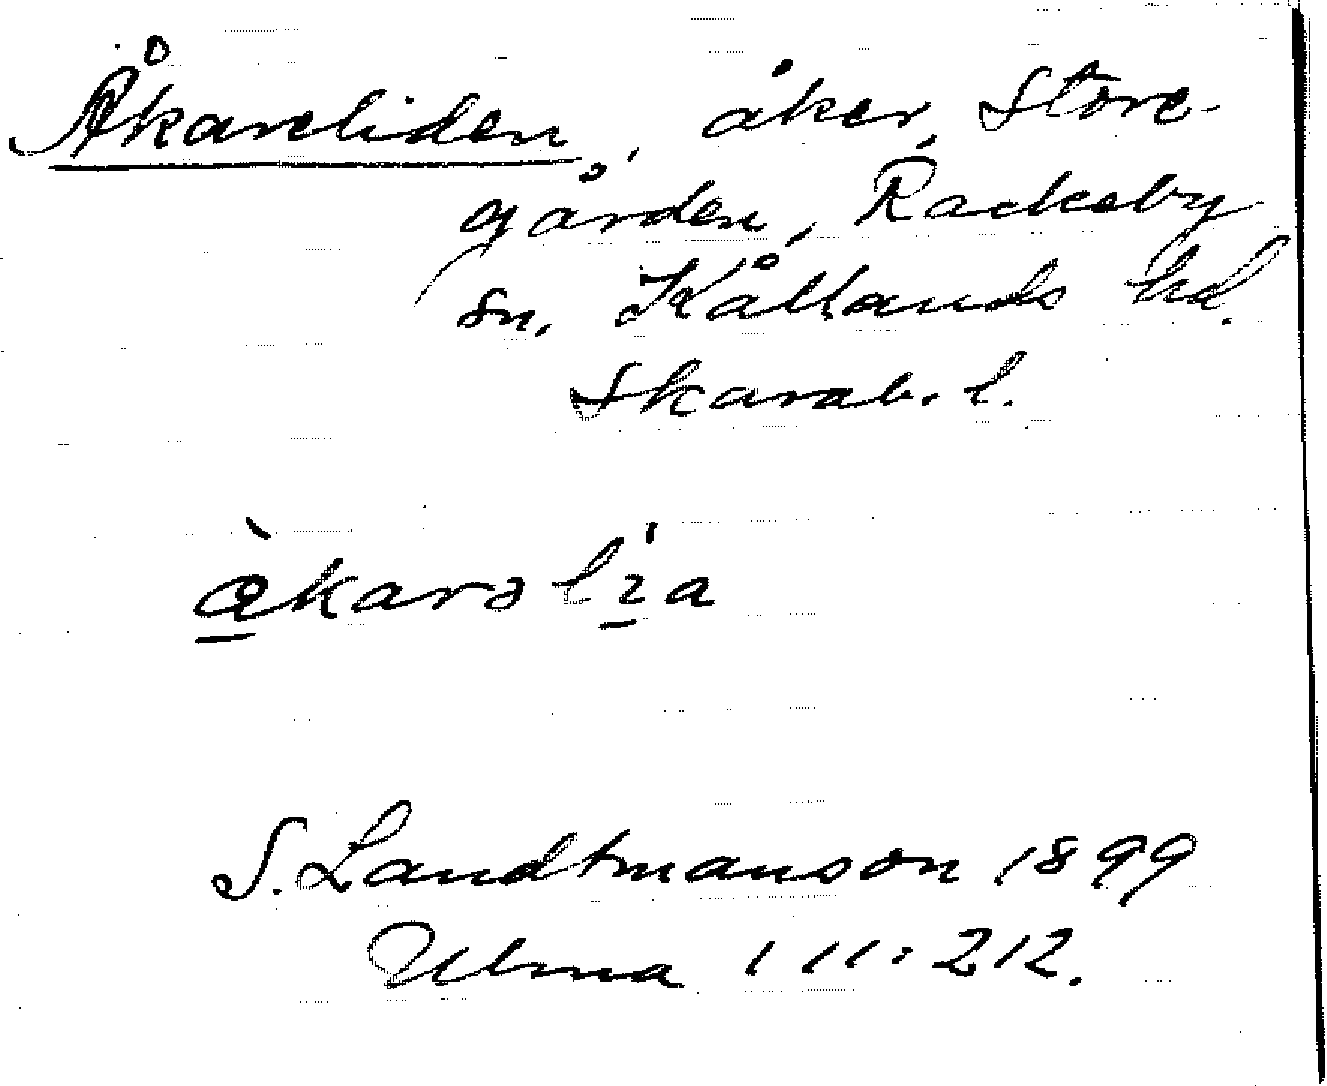 Åkareliden, åker, Store-
gården, Rackeby
sn, Kållands hd.
Skarab. l.
àkarə lia
S. Landtmanson 1899
Ulma 111:212.